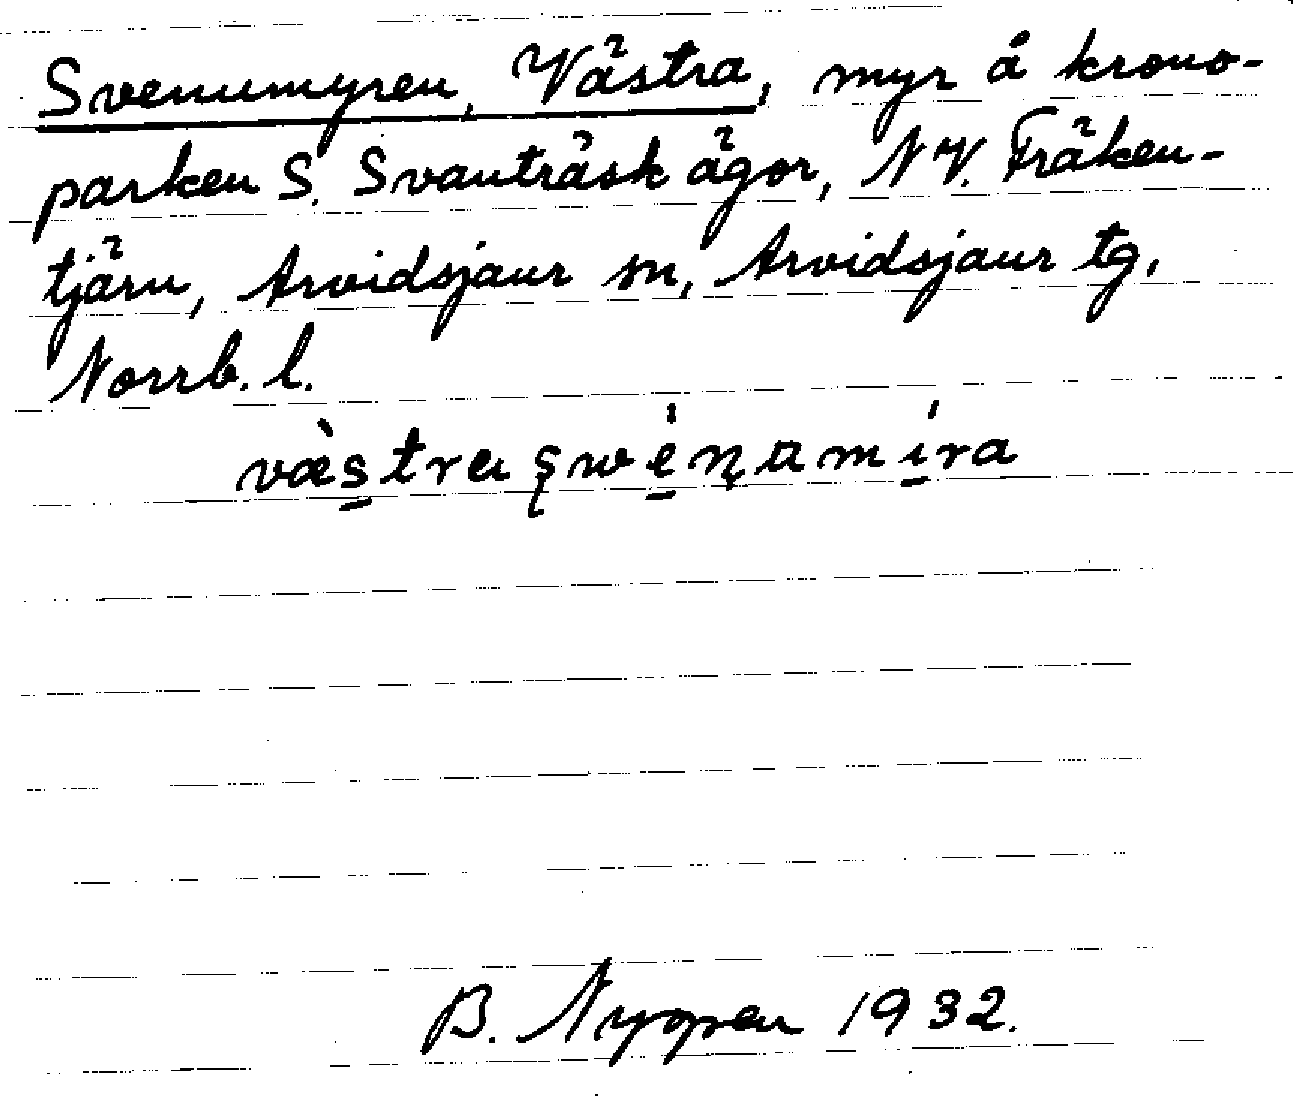 Svenumyren, Västra, myr å krono-
parken S. Svanträsk ägor, NV. Fräken-
tjärn, Arvidsjaur sn, Arvidsjaur tg,
Norrb. l.
västra
B. Nygren 1932.